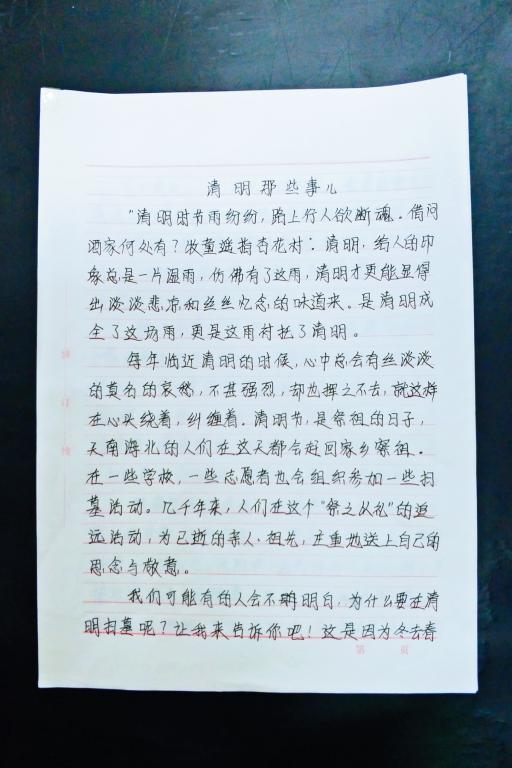 清明那些事儿
“清明时节雨纷纷，路上行人欲断魂。借问
酒家何处有？牧童遥指杏花村”。清明，给人的印
象总是一片湿雨，仿佛有了这雨，清明才更能显得
出淡淡悲凉和丝丝忆念的味道来。是清明成
全了这场雨，更是这雨衬托了清明。
每年临近清明的时候，心中总会有丝淡淡
的莫名的哀愁，不甚强烈，却也挥之不去，就这样
在心头绕着，纠缠着。清明节，是祭祖的日子，
天南海北的人们在这天都会赶回家乡祭祖。
在一些学校，一些志愿者也会组织参加一些扫
墓活动。几千年来，人们在这个“祭之以礼”的追
远活动，为已逝的亲人、祖先，庄重地送上自己的
思念与敬意。
我们可能有的人会不明白，为什么要在清
明扫墓呢？让我来告诉你吧！这是因为冬去春
第 页
订